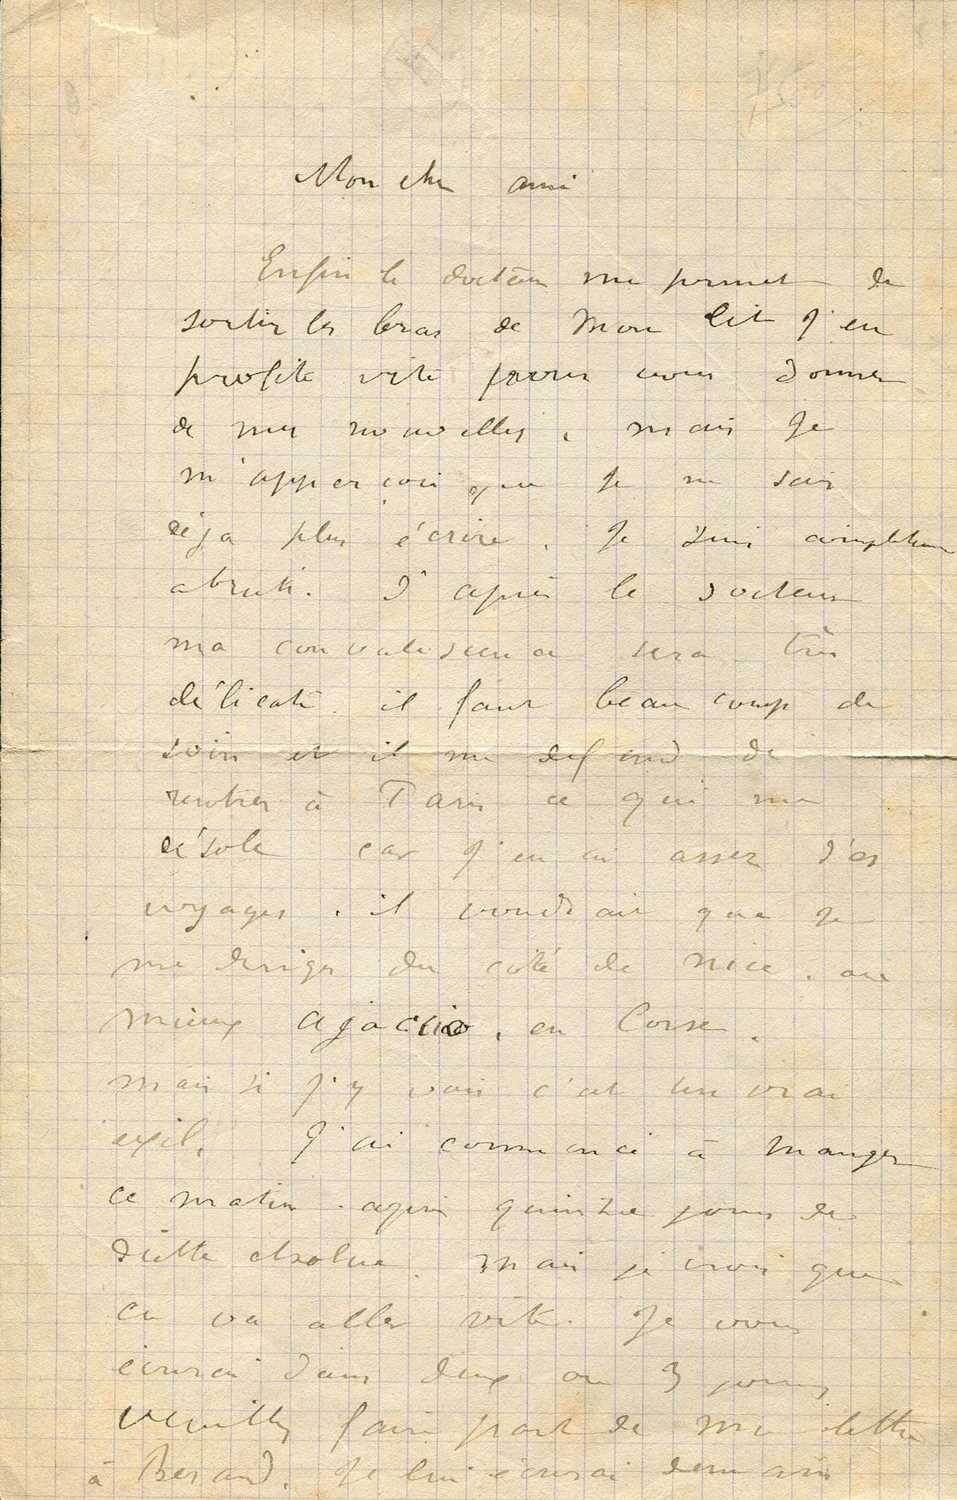 Mon cher ami
Enfin le docteur me permet de
sortir les bras de mon lit j'en
profite vite pour vous donner
de mes nouvelles, mais je
m'apperçois que je ne sais
déja plus écrire. Je suis completement
abruti. D'après le docteur
ma convalescence sera très
délicate il faut beaucoup de
soin et il me defend de
rentrer à Paris ce qui me
désole car j'en ai assez des
voyages. il voudrait que je
me dirige du côté de Nice. ou
mieux ajaccio, en Corse.
mais si j'y vais c'est un vrai
exil. J'ai commencé à manger
ce matin. après quinze jours de
diette absolue. mais je crois que
ca va aller vite. Je vous
écrirai dans deux ou 3 jours
veuillez faire part de ma lettre
à Berand. Je lui écrirai demain